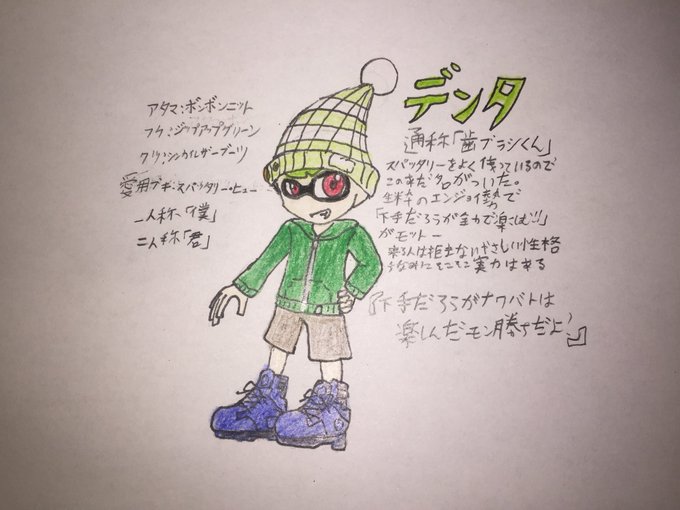 アタマ:ボンボンニット
フク:ジップアップグリーン
クツ:シンカイレザーブーツ
愛用ブキ:スパッタリー・ヒュー
一人称、「僕」
二人称「君」
デンタ
通称「歯ブラシくん」
スパッタリーをよく使っているので
この来だ名がついた。
生粋のエンジョイ勢で
「下手だろうが全力で楽しむ!!!」
がモットー
来る人は拒まないやさしい性格
ちなみにそこそこ実力はある
『下手だろうがナワバトは
楽しんだモン勝ちだよ!』